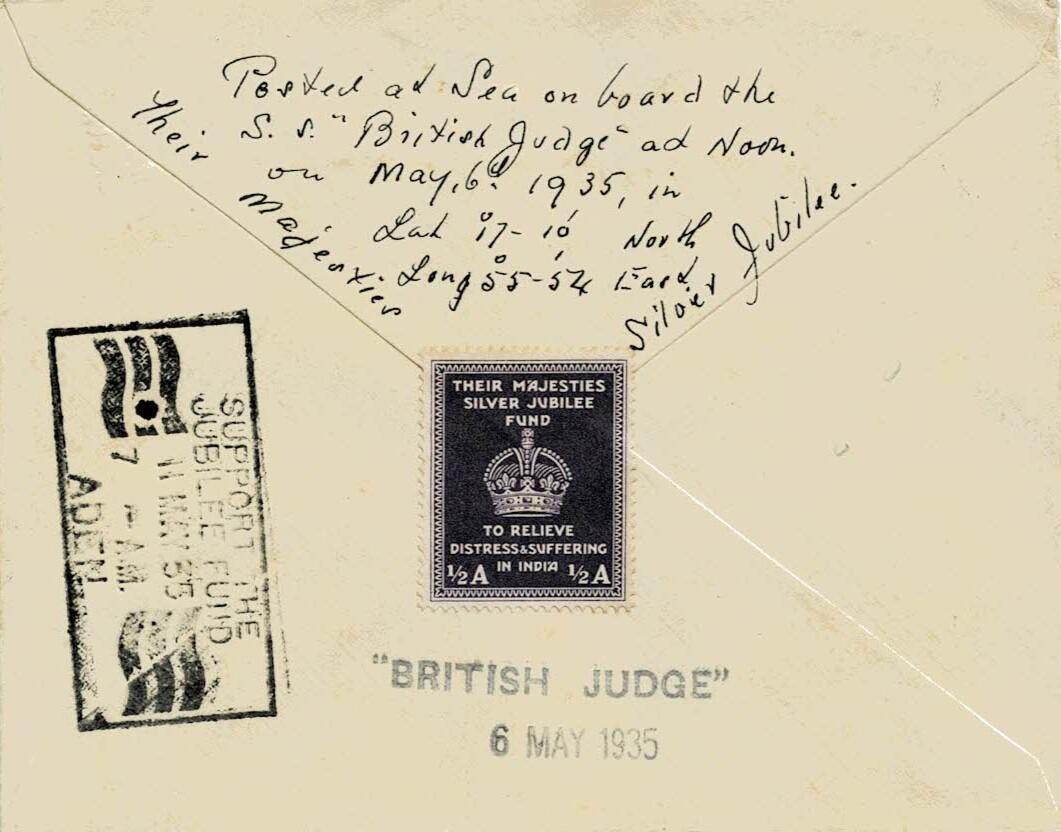 Posted at Sea on board the
S.S. "British Judge" at Noon.
on May, 6th 1935, in
Lat 17°-10' North
Long 55°-54' East
Their Majesties
Silver Jubilee.
THEIR MAJESTIES
SILVER JUBILEE
FUND
TO RELIEVE
DISTRESS & SUFFERING
IN INDIA
½A ½A
SUPPORT THE
JUBILEE FUND
11 MAY 35
7 - A.M.
ADEN.
"BRITISH JUDGE"
6 MAY 1935